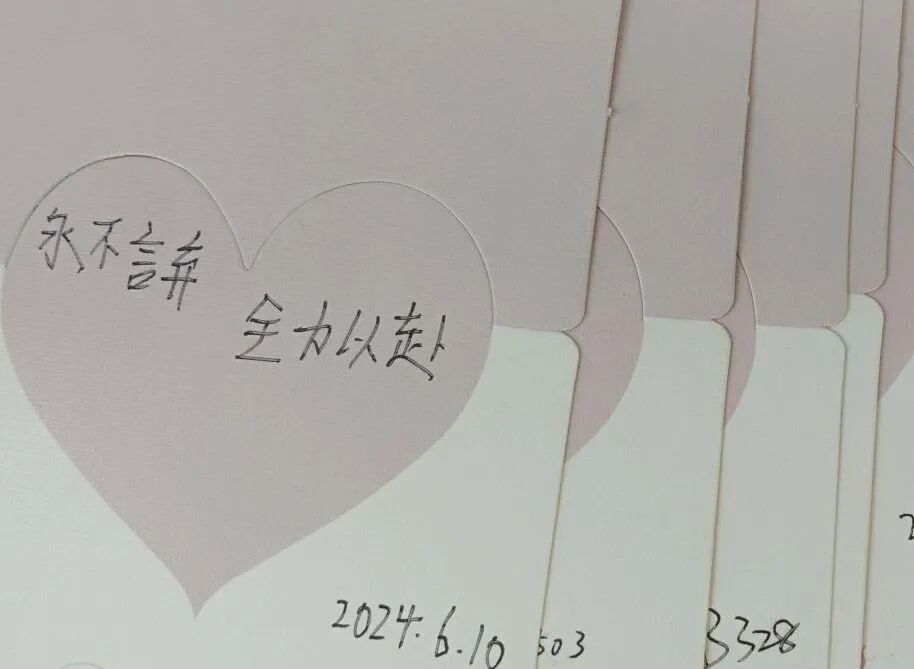 永不言弃
全力以赴
2024.6.10
503
3328